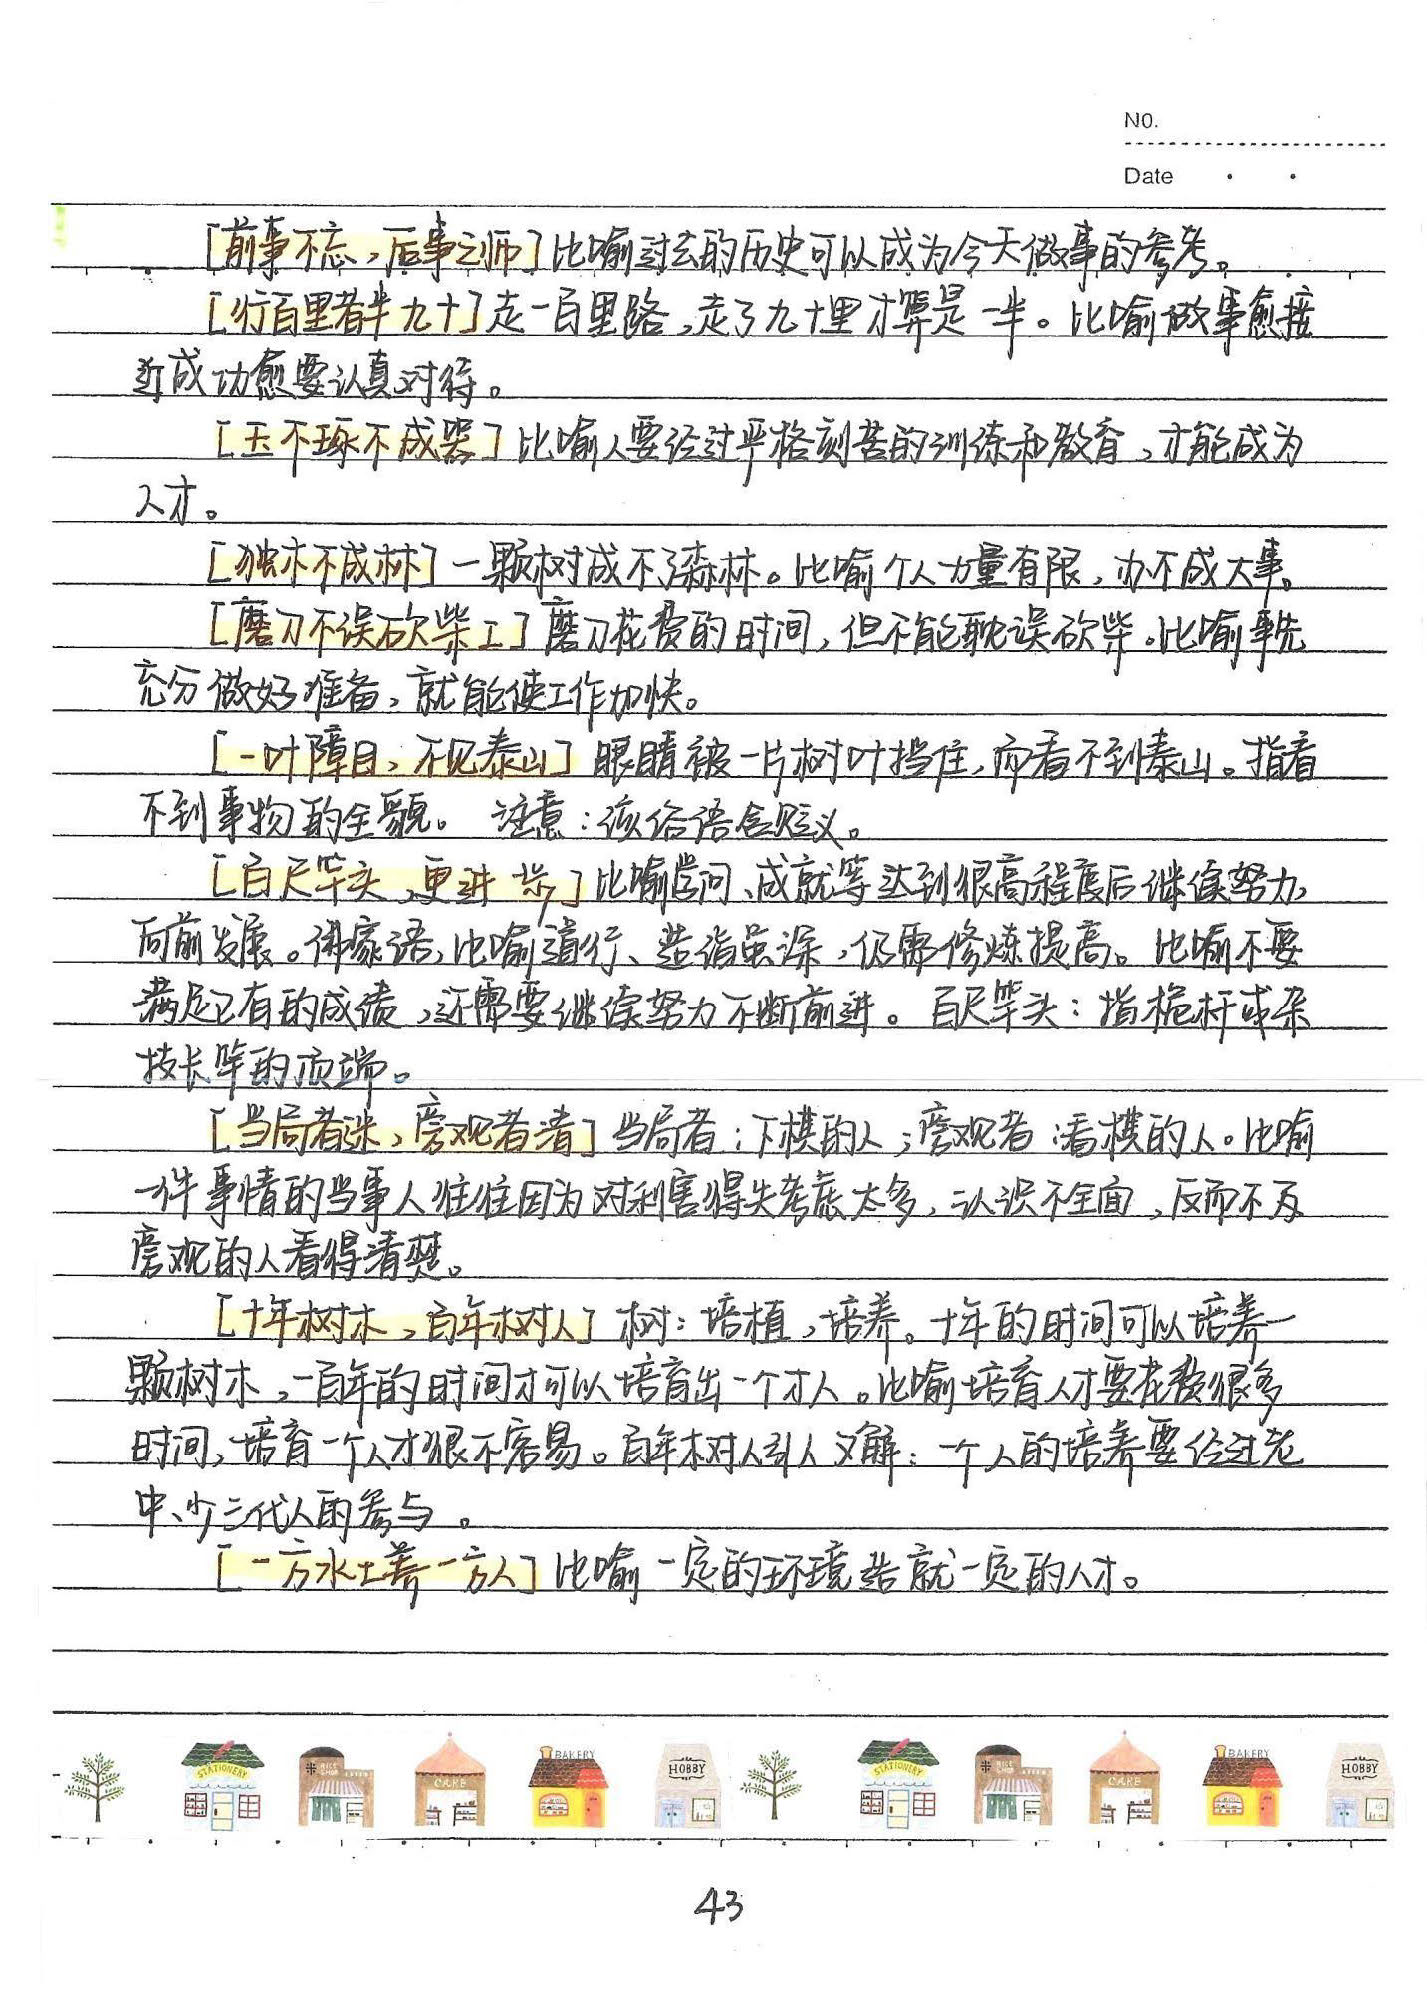 NO.
Date
[前事不忘，后事之师] 比喻过去的历史可以成为今天做事的参考。
[行百里者半九十] 走一百里路，走了九十里才算是一半。比喻做事愈接
近成功愈要认真对待。
[玉不琢不成器] 比喻人要经过严格刻苦的训练和教育，才能成为
人才。
[独木不成林] 一颗树成不了森林。比喻个人力量有限，办不成大事。
[磨刀不误砍柴工] 磨刀花费的时间，但不能耽误砍柴。比喻事先
充分做好准备，就能使工作加快。
[一叶障目，不见泰山] 眼睛被一片树叶挡住，而看不到泰山。指看
不到事物的全貌。 注意：该俗语含贬义。
[百尺竿头，更进一步] 比喻学问、成就等达到很高程度后继续努力，
向前发展。佛家语，比喻道行、造诣虽深，仍需修炼提高。比喻不要
满足已有的成绩，还需要继续努力不断前进。百尺竿头：指桅杆或杂
技长竿的顶端。
[当局者迷，旁观者清] 当局者：下棋的人；旁观者：看棋的人。比喻
一件事情的当事人往往因为对利害得失考虑太多，认识不全面，反而不及
旁观的人看得清楚。
[十年树木，百年树人] 树：培植，培养。十年的时间可以培养一
颗树木，一百年的时间才可以培育出一个才人。比喻培育人才要花费很多
时间，培育一个人才很不容易。百年树人引人义解：一个人的培养要经过老
中、少三代人的参与。
[一方水土养一方人] 比喻一定的环境造就一定的人才。
STATIONERY
RICE SHOP
CAKE
BAKERY
HOBBY
STATIONERY
RICE SHOP
CAKE
BAKERY
HOBBY
43